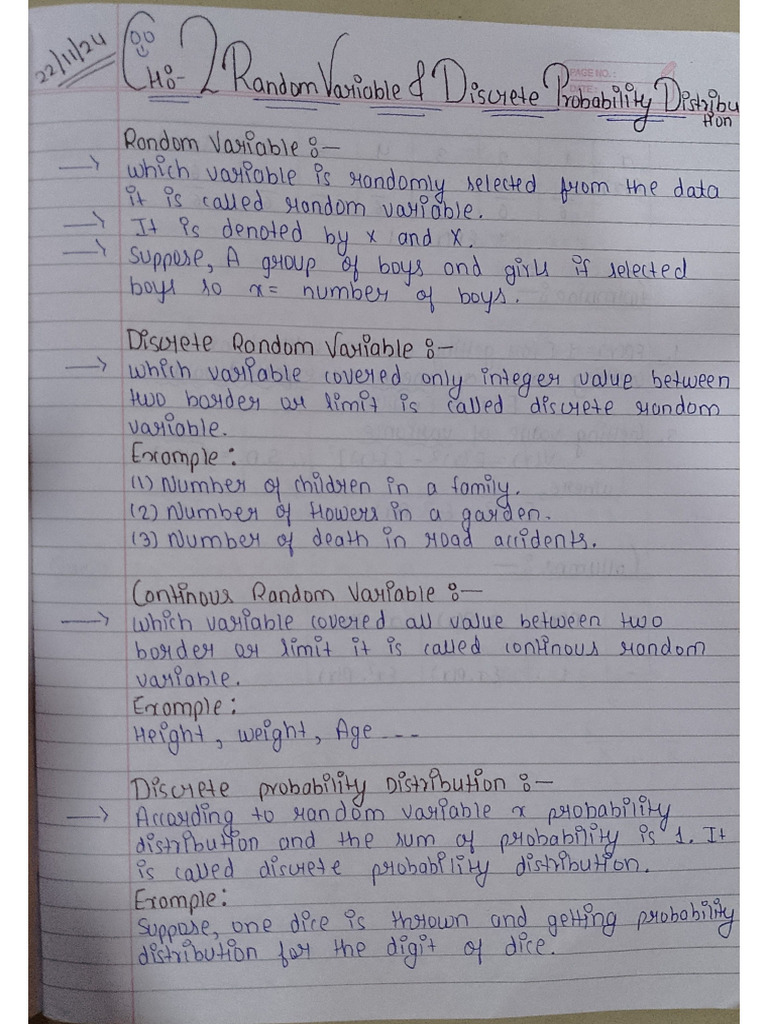 22/11/24
CH:- 2 Random Variable & Discrete Probability Distribu
tion
PAGE NO.:
DATE:
Random Variable :-
→ which variable is randomly selected from the data
it is called random variable.
→ It is denoted by x and X.
→ Suppose, A group of boys and girls if selected
boys so x = number of boys.
Discrete Random Variable :-
→ which variable covered only integer value between
two border or limit is called discrete random
variable.
Example :
(1) Number of children in a family.
(2) Number of flowers in a garden.
(3) Number of death in road accidents.
Continous Random Variable :-
→ which variable covered all value between two
border or limit it is called continous random
variable.
Example :
Height, weight, Age ---
Discrete probability Distribution :-
→ According to random variable x probability
distribution and the sum of probability is 1. It
is called discrete probability distribution.
Example :
Suppose, one dice is thrown and getting probability
distribution for the digit of dice.